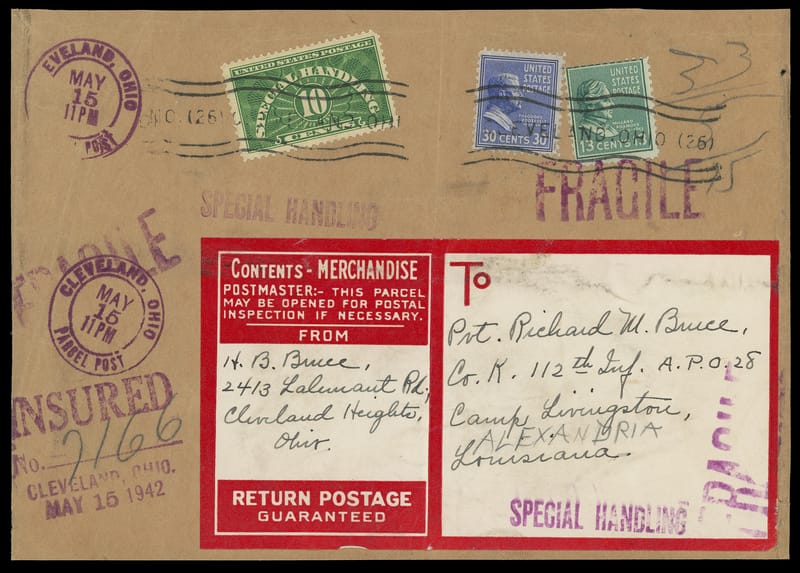 EVELAND, OHIO
MAY
15
11PM
POST
UNITED STATES POSTAGE
SPECIAL HANDLING
10
CENTS
UNITED
STATES
POSTAGE
30 CENTS 30
UNITED
STATES
POSTAGE
13 CENTS
O. (26)
VELAND, OHIO (26)
33
15
FRAGILE
SPECIAL HANDLING
FRAGILE
CLEVELAND, OHIO
MAY
15
11PM
PARCEL POST
INSURED
No. 7166
CLEVELAND, OHIO.
MAY 15 1942
CONTENTS - MERCHANDISE
POSTMASTER:- THIS PARCEL
MAY BE OPENED FOR POSTAL
INSPECTION IF NECESSARY.
FROM
H. B. Bruce,
2413 Lalemant Rd.,
Cleveland Heights,
Ohio.
RETURN POSTAGE
GUARANTEED
To
Pvt. Richard M. Bruce,
Co. K. 112th Inf. A.P.O. 28
Camp Livingston,
ALEXANDRIA
Louisiana.
SPECIAL HANDLING
FRAGILE